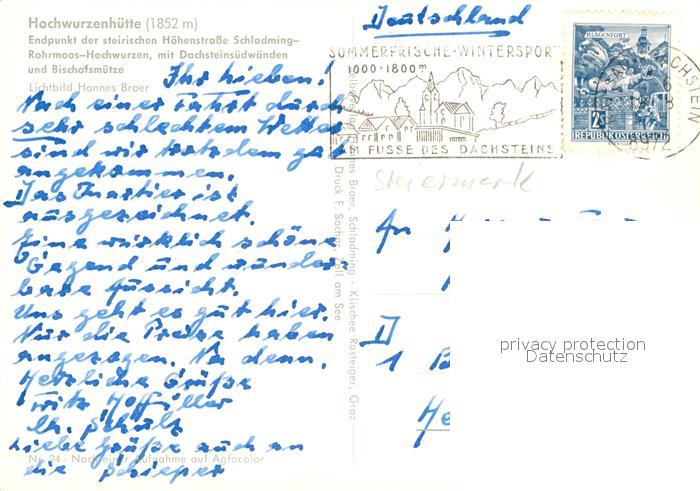 Hochwurzenhütte (1852 m)
Endpunkt der steirischen Höhenstraße Schladming–
Rohrmoos–Hochwurzen, mit Dachsteinsüdwänden
und Bischofsmütze
Lichtbild Hannes Broer
Ihr Lieben!
Nach einer Fahrt durch
sehr schlechtem Wetter
sind wir trotzdem gut
angekommen.
Das Quartier ist
ausgezeichnet.
Eine wirklich schöne
Gegend und wunder-
bare Aussicht.
Uns geht es gut hier.
Nur die Preise haben
angezogen. Na denn.
Herzliche Grüße
Fritz
u. Schulz
Liebe Grüße auch an
die Schieper
Nr. 24 - Nach einer Aufnahme auf Agfacolor
Hannes Broer, Schladming - Klischee Rasteiger, Graz
Druck F. Sochor, Zell am See
Deutschland
SOMMERFRISCHE-WINTERSPORT
1000-1800m
AM FUSSE DES DACHSTEINS
KLAGENFURT
2S
REPUBLIK ÖSTERREICH
8972
Steiermark
An
D
1 B
He
privacy protection
Datenschutz